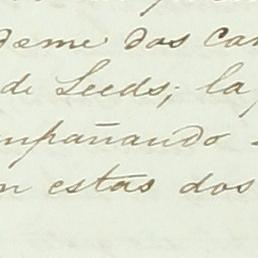 deme dos car
de Leeds; la
mpañando
n estas dos